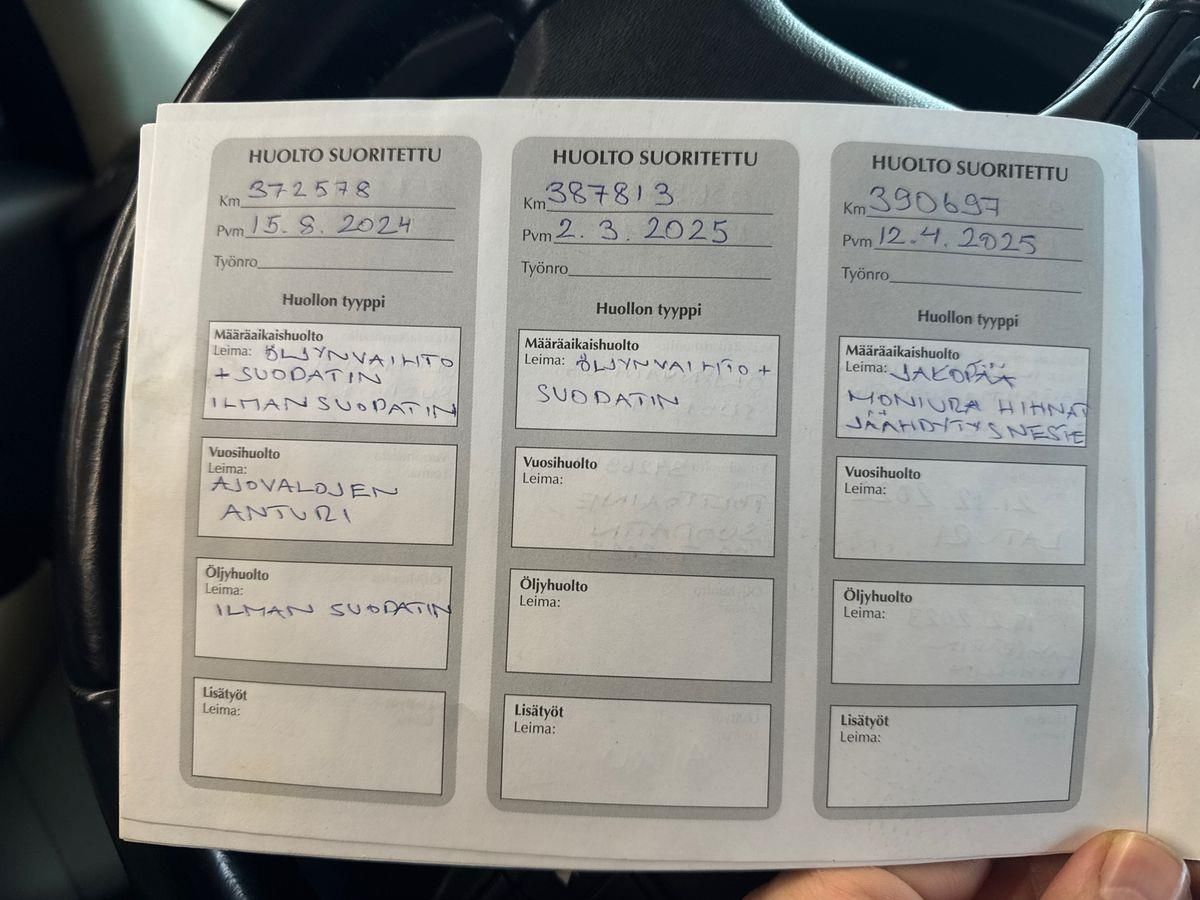 HUOLTO SUORITETTU
Km 372578
Pvm 15. 8. 2024
Työnro
Huollon tyyppi
Määräaikaishuolto
Leima: ÖLJYNVAIHTO
+ SUODATIN
ILMANSUODATIN
Vuosihuolto
Leima:
AJOVALOJEN
ANTURI
Öljyhuolto
Leima:
ILMAN SUODATIN
Lisätyöt
Leima:
HUOLTO SUORITETTU
Km 387813
Pvm 2. 3. 2025
Työnro
Huollon tyyppi
Määräaikaishuolto
Leima: ÖLJYNVAIHTO +
SUODATIN
Vuosihuolto
Leima:
Öljyhuolto
Leima:
Lisätyöt
Leima:
HUOLTO SUORITETTU
Km 390697
Pvm 12.4. 2025
Työnro
Huollon tyyppi
Määräaikaishuolto
Leima: JAKOPÄÄ
MONIURA HIHNAT
JÄÄHDYTYSNESTE
Vuosihuolto
Leima:
Öljyhuolto
Leima:
Lisätyöt
Leima: